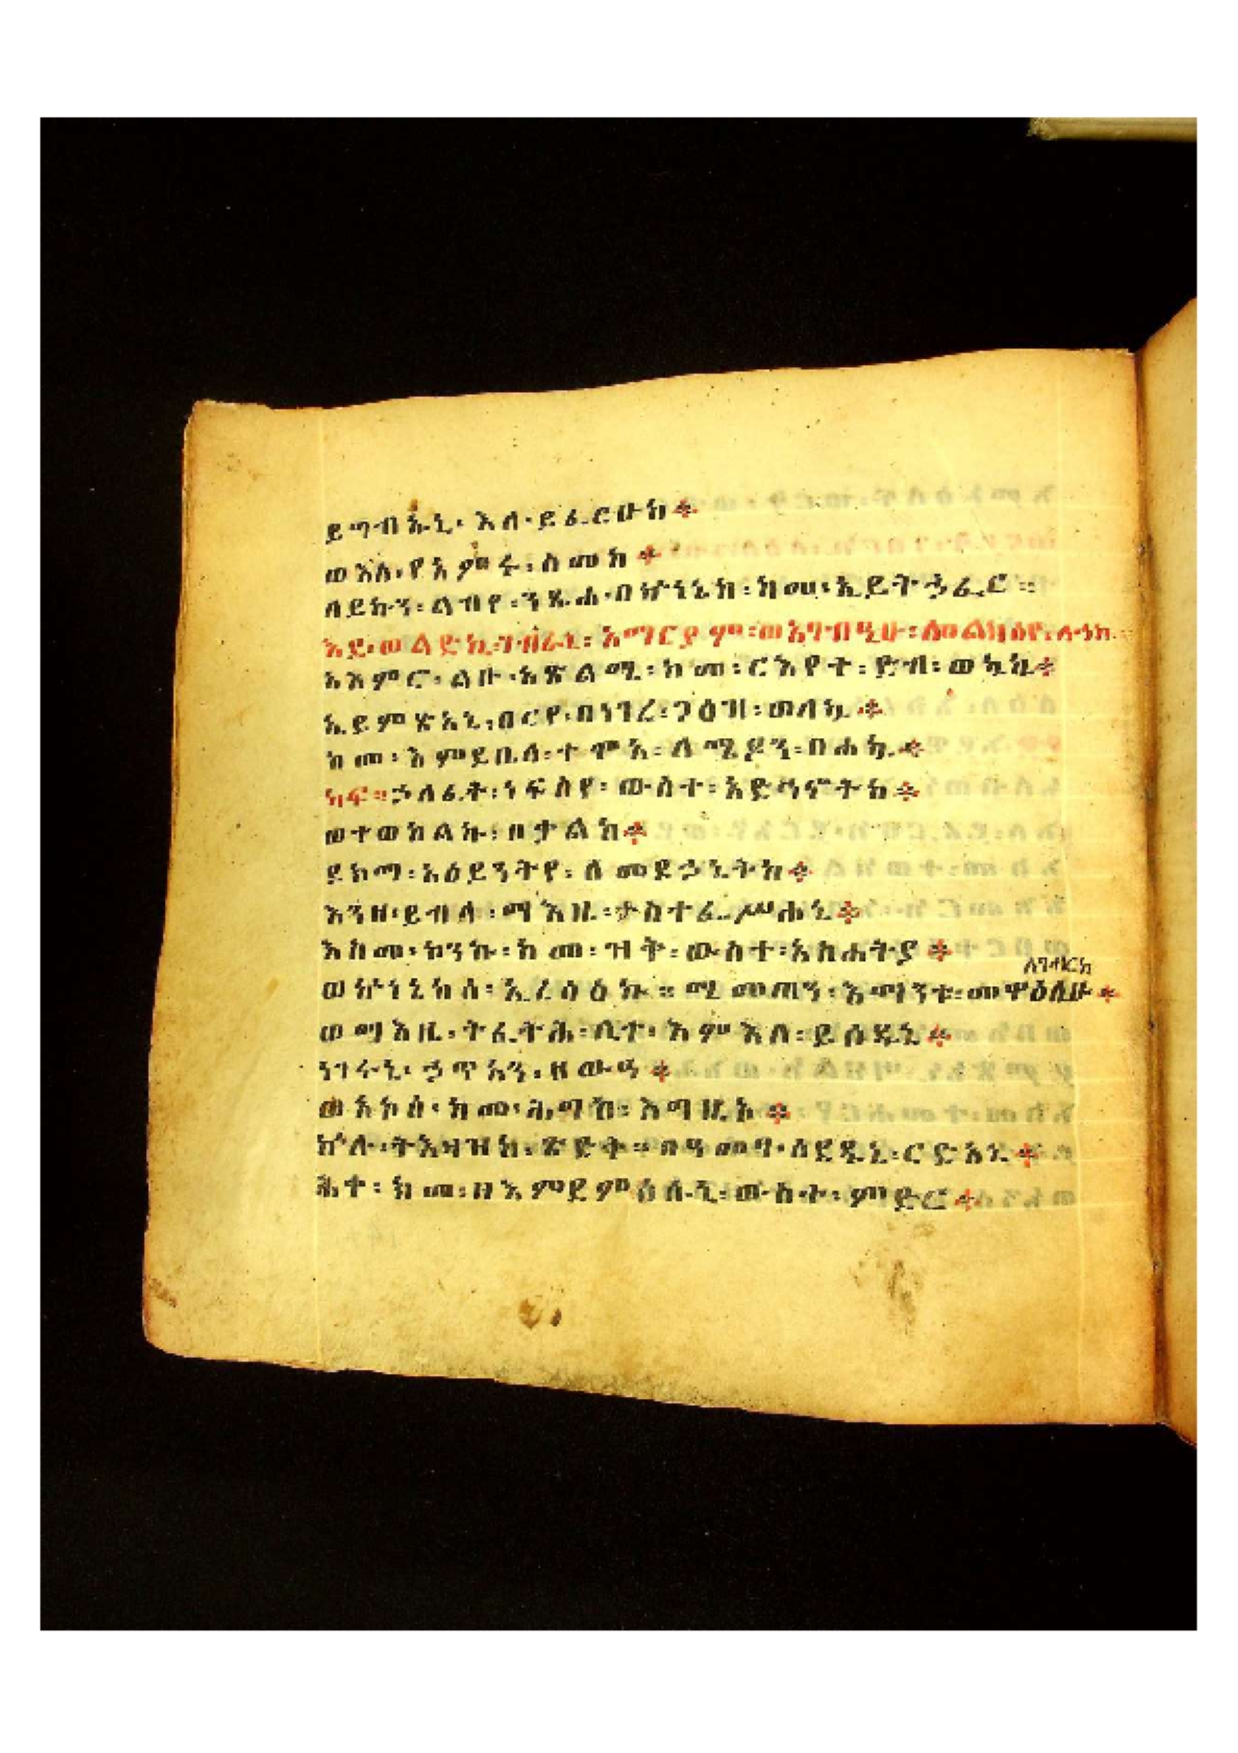 ይግብኡኒ፡ እለ፡ ይፈርሁከ፨
ወእለ፡ የአምሩ፡ ስመከ፨
ለይኩን፡ ልብየ፡ ንጹሐ፡ በኵነኔከ፡ ከመ፡ ኢይትኃፈር።
እደ፡ ወልድኪ፡ እማርያም፡
አእምሮ፡ ልቡ፡ አጽልሚ፡ ከመ፡ ርእየተ፡ ድብ፡ ወኳኪ፨
ኢይምጽአኒ፡ ፀርየ፡ በነገረ፡ ጋዕዝ፡ ወለኳ፨
ከመ፡ እምይቤለ፡ ተሞአ፡ ለሜዶን፡ በሐኪ፨
ካፍ። ኃለፈት፡ ነፍስየ፡ ውስተ፡ አድኅኖትከ፨
ወተወከልኩ፡ በቃልከ፨
ደክማ፡ አዕይንትየ፡ ለመድኃኒትከ፨
እንዘ፡ ይብላ፡ ማእዜ፡ ታስተፌሥሐኒ፨
እስመ፡ ኮንኩ፡ ከመ፡ ዝቅ፡ ውስተ፡ አስሐትያ፨
ለገብርከ
ወኵነኔከሰ፡ ኢረሳዕኩ። ሚመጠን፡ እማንቱ፡ መዋዕሊሁ፨
ወማእዜ፡ ትፈትሕ፡ ሊተ፡ እምእለ፡ ይሰዱኒ፨
ነገሩኒ፡ ኃጥአን፡ ዘውዓ፨
ወአኮሰ፡ ከመ፡ ሕግከ፡ እግዚኦ፨
ኵሉ፡ ትእዛዝከ፡ ጽድቅ። በዓመፃ፡ ሰደዱኒ፡ ርድአኒ፨
ሕቀ፡ ከመ፡ ዘእምደምሰሱኒ፡ ውስተ፡ ምድር፨